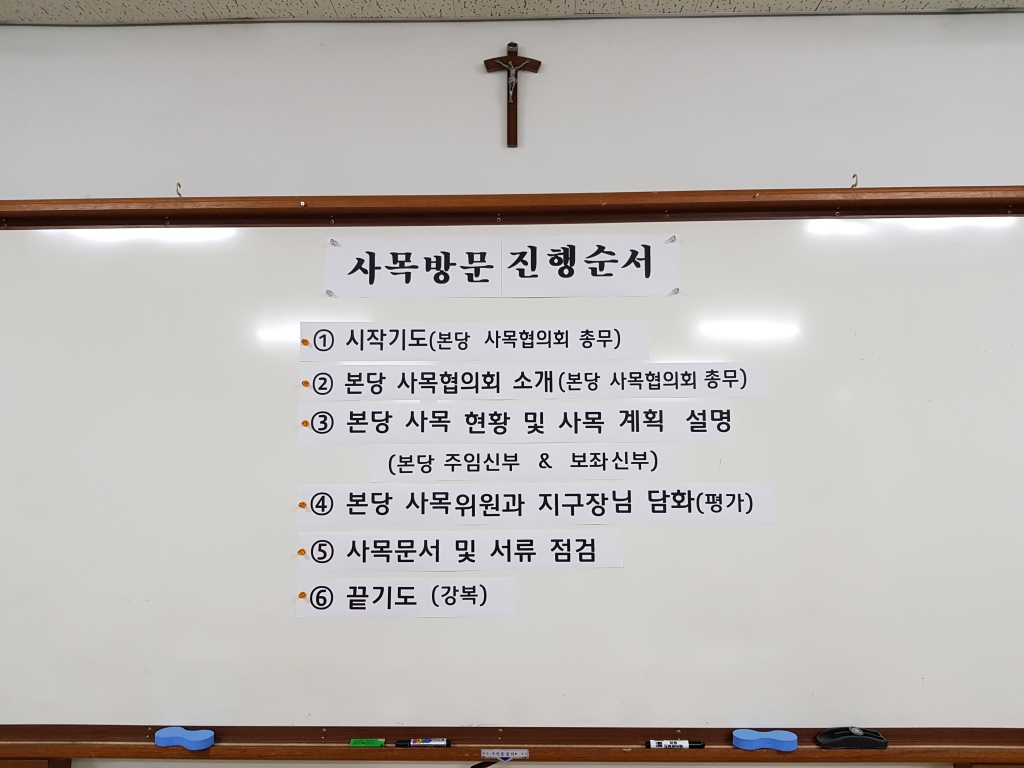 사목방문 진행순서
① 시작기도(본당 사목협의회 총무)
② 본당 사목협의회 소개(본당 사목협의회 총무)
③ 본당 사목 현황 및 사목 계획 설명
(본당 주임신부 & 보좌신부)
④ 본당 사목위원과 지구장님 담화(평가)
⑤ 사목문서 및 서류 점검
⑥ 끝기도 (강복)